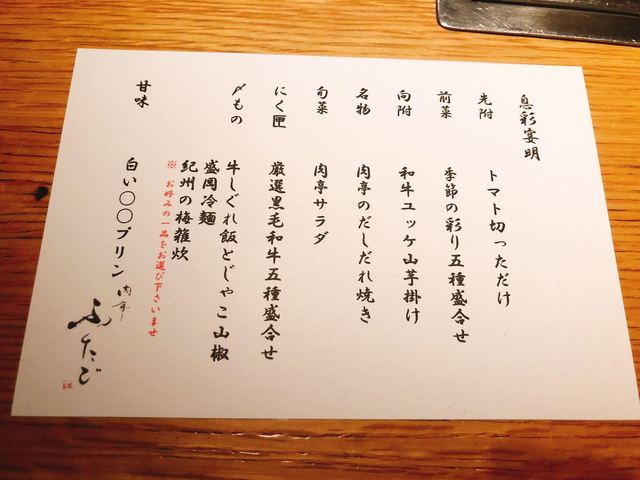 息彩宴明
先附 トマト切っただけ
前菜 季節の彩り五種盛合せ
向附 和牛ユッケ山芋掛け
名物 肉亭のだしだれ焼き
旬菜 肉亭サラダ
にく匣 厳選黒毛和牛五種盛合せ
〆もの 牛しぐれ飯とじゃこ山椒
盛岡冷麺
紀州の梅雑炊
※ お好みの一品をお選び下さいませ
甘味 白い〇〇プリン
肉亭 ふたご